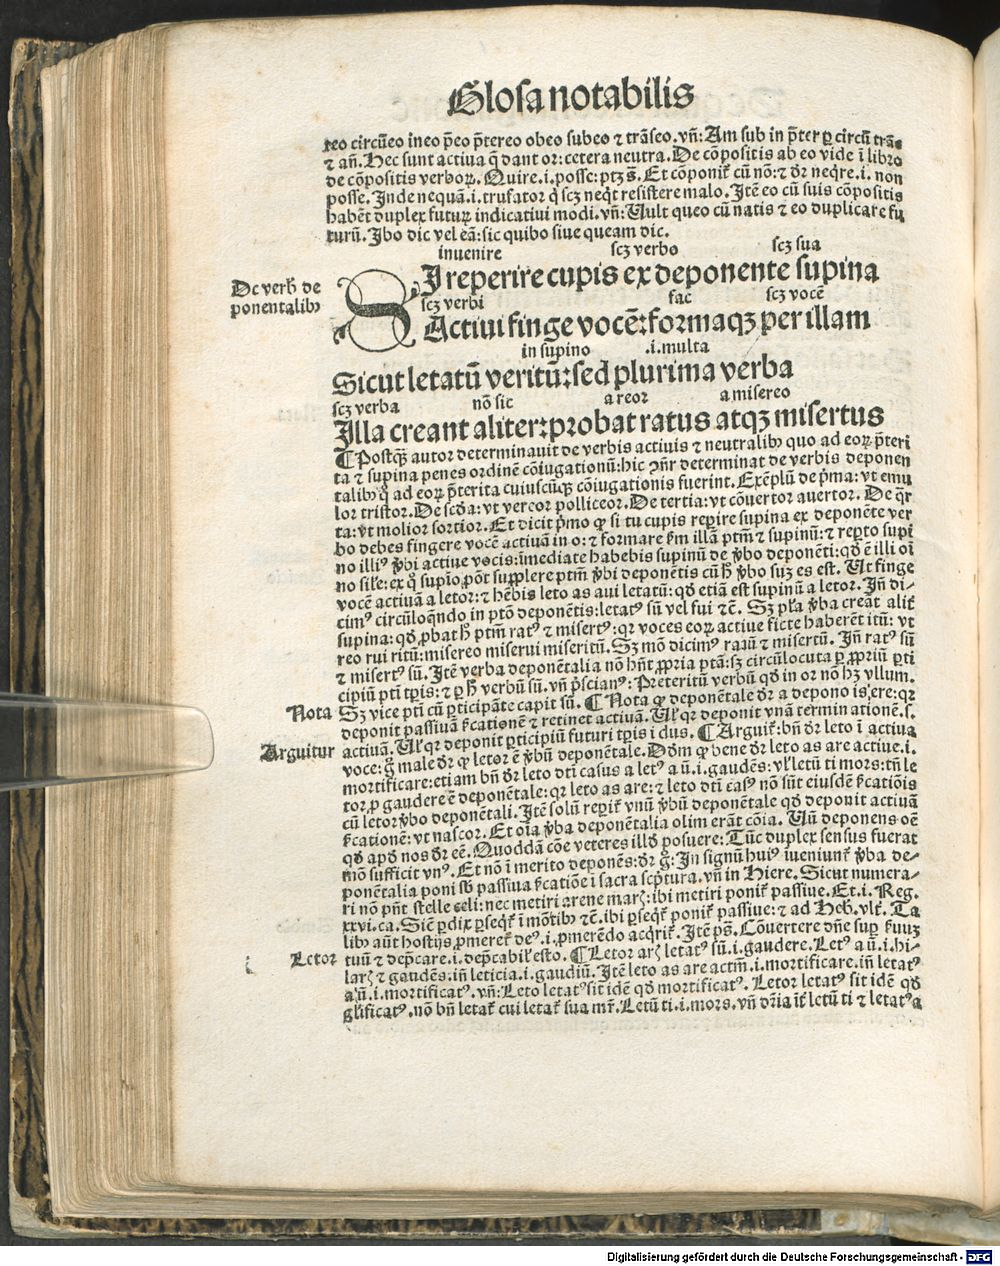 Glosa notabilis
reo circūeo ineo p̄eo p̄tereo obeo subeo ⁊ trāseo. vn̄: Am sub in p̄ter ꝑ circū trās
⁊ an̄. Hec sunt actiua q̄ dant or: cetera neutra. De cōpositis ab eo vide ī libro
de cōpositis verboꝝ. Quire .i. posse: ptꝫ s̄. Et cōponiẗ cū nō: ⁊ dr̄ neq̄re .i. non
posse. Inde nequā .i. trufator q̇ scꝫ neq̇t resistere malo. Itē eo cū suis cōpositis
habēt duplex futuꝝ indicatiui modi. vn̄: Uult queo cū natis ⁊ eo duplicare fu
turū. Ibo dic vel eā: sic quibo siue queam dic.
inuenire scꝫ verbo scꝫ sua
De verb̄ de
ponentalibꝰ
SI reperire cupis ex deponente supina
scꝫ verbi fac scꝫ vocē
Actiui finge vocē: formaqꝫ per illam
in supino .i. multa
Sicut letatū veritū: sed plurima verba
scꝫ verba nō sic a reor a misereo
Illa creant aliter: probat ratus atqꝫ misertus
¶ Postq̄ꝫ autor determinauit de verbis actiuis ⁊ neutralibꝰ quo ad eoꝝ p̄teri
ta ⁊ supina penes ordinē cōiugationū: hic ꝯn̄r determinat de verbis deponen
talibꝰ q̇ ad eoꝝ p̄terita cuiuscūqꝫ cōiugationis fuerint. Exēplū de p̄ma: vt emu
lor tristor. De scd̄a: vt vereor polliceor. De tertia: vt cōuertor auertor. De q̄r
ta: vt molior sortior. Et dicit p̄mo ꝙ si tu cupis reꝑire supina ex deponēte ver
bo debes fingere vocē actiuā in o: ⁊ formare ẜm illā ptm̄ ⁊ supinū: ⁊ reꝑto supi
no illiꝰ v̄bi actiue vocis: īmediate habebis supinū de v̄bo deponēti: qd̄ ē illi oī
no sil̄e: ex q̊ supīo pōt supplere ptm̄ v̄bi deponētis cū h̄ v̄bo suꝫ es est. Ut finge
vocē actiuā a letor: ⁊ hēbis leto as aui letatū: qd̄ etiā est supinū a letor. In̄ di-
cimꝰ circūloq̄ndo in ptō deponētis: letatꝰ sū vel fui ⁊c̄. Sꝫ pl̄a v̄ba creāt aliẗ
supina: qd̄ ꝓbat h̄ ptm̄ ratꝰ ⁊ misertꝰ: qr voces eoꝝ actiue ficte haberēt itū: vt
reo rui ritū: misereo miserui miseritū. Sꝫ mō dicimꝰ ratū ⁊ misertū. In̄ ratꝰ sū
⁊ misertꝰ sū. Itē verba deponētalia nō hn̄t ꝓpria ptā: sꝫ circūlocuta ꝑ ꝓpriū ꝑti
cipiū pti tꝑis: ⁊ ꝑ h̄ verbū sū. vn̄ p̄scianꝰ: Preteritū verbū qd̄ in or nō hꝫ vllum.
Nota
Sꝫ vice pti cū ꝑticipāte capit sū. ¶ Nota ꝙ deponētale dr̄ a depono is ere: qr
deponit passiuā ẜcationē ⁊ retinet actiuā. Ul̄ qr deponit vnā terminationē .s.
Arguitur
actiuā. Ul̄ qr deponit ꝑticipiū futuri tꝑis i dus. ¶ Arguiẗ: bn̄ dr̄ leto ī actiua
voce: g̊ male dr̄ ꝙ letor ē v̄bū deponētale. Dōm ꝙ bene dr̄ leto as are actiue .i.
mortificare: etiam bn̄ dr̄ leto dti casus a letꝰ a ū .i. gaudēs: vl̄ letū ti mors: tn̄ le
tor ꝓ gaudere ē deponētale: qr leto as are: ⁊ leto dti casꝰ nō sūt eiusdē ẜcatiōis
cū letor v̄bo deponētali. Itē solū reꝑiẗ vnū v̄bū deponētale qd̄ deponit actiuā
ẜcationē: vt nascor. Et oīa v̄ba deponētalia olim erāt cōia. Uū deponens oē
qd̄ apd̄ nos dr̄ eē. Quoddā cōe veteres illd̄ posuere: Tūc duplex sensus fuerat
mō sufficit vnꝰ. Et nō ī merito deponēs: dr̄ g̊: In signū huiꝰ iueniunẗ v̄ba de-
ponētalia poni sb̄ passiua ẜcatiōe ī sacra scp̄tura. vn̄ in Hiere. Sicut numera-
ri nō pn̄t stelle celi: nec metiri arene marꝭ: ibi metiri poniẗ passiue. Et .i. Reg.
xxvi. ca. Siē ꝑdix ꝑseq̄ẗ ī mōtibꝰ ⁊c̄. ibi ꝑseq̄ẗ poniẗ passiue: ⁊ ad Heb. vlt̄. Ta
libꝰ aūt hostijs ꝓmereẗ deꝰ .i. ꝓmerēdo acq̄riẗ. Itē ps̄. Cōuertere dn̄e suꝑ ẜuuꝫ
Letor
tuū ⁊ dep̄care .i. dep̄cabil̄ esto. ¶ Letor arꝭ letatꝰ sū .i. gaudere. Letꝰ a ū .i. hi-
larꝭ ⁊ gaudēs: in̄ leticia .i. gaudiū. Itē leto as are actm̄ .i. mortificare. in̄ letatꝰ
a ū .i. mortificatꝰ. vn̄: Leto letatꝰ sit idē qd̄ mortificatꝰ. Letor letatꝰ sit idē qd̄
gl̄ificatꝰ. nō bn̄ letaẗ cui letaẗ sua mr̄. Letū ti .i. mors. vn̄ dr̄ia iẗ letū ti ⁊ letatꝰ a
Digitalisierung gefördert durch die Deutsche Forschungsgemeinschaft - DFG